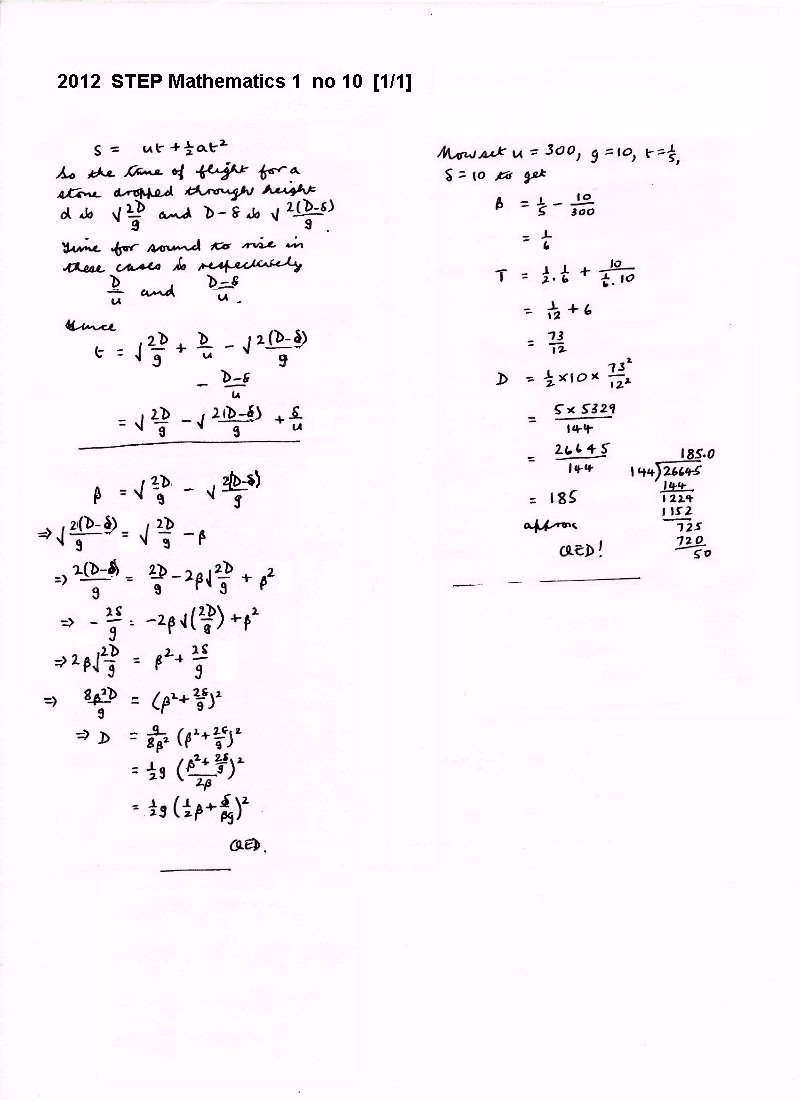 2012 STEP Mathematics 1 no 10 [1/1]
S = ut + ½at²
So the time of flight for a
stone dropped through height
d is √(2D/g) and D-δ is √(2(D-δ)/g).
Time for sound to rise in
these cases is respectively
D/u and (D-δ)/u.
Hence
t = √(2D/g) + D/u - √(2(D-δ)/g)
- (D-δ)/u
= √(2D/g) - √(2(D-δ)/g) + δ/u
β = √(2D/g) - √(2(D-δ)/g)
⇒ √(2(D-δ)/g) = √(2D/g) - β
⇒ 2(D-δ)/g = 2D/g - 2β√(2D/g) + β²
⇒ - 2δ/g = -2β√(2D/g) + β²
⇒ 2β√(2D/g) = β² + 2δ/g
⇒ 8β²D/g = (β² + 2δ/g)²
⇒ D = g/8β² (β² + 2δ/g)²
= ½g ((β² + 2δ/g)/2β)²
= ½g (½β + δ/βg)²
QED.
Now set u = 300, g = 10, t = 1/5,
δ = 10 to get
β = 1/5 - 10/300
= 1/6
T = 1/2 . 1/6 + 10/(1/6 . 10)
= 1/12 + 6
= 73/12
D = ½ × 10 × 73²/12²
= 5 × 5329/144
= 26645/144
= 185
approx
QED!
185.0
144)26645
144
1224
1152
725
720
50